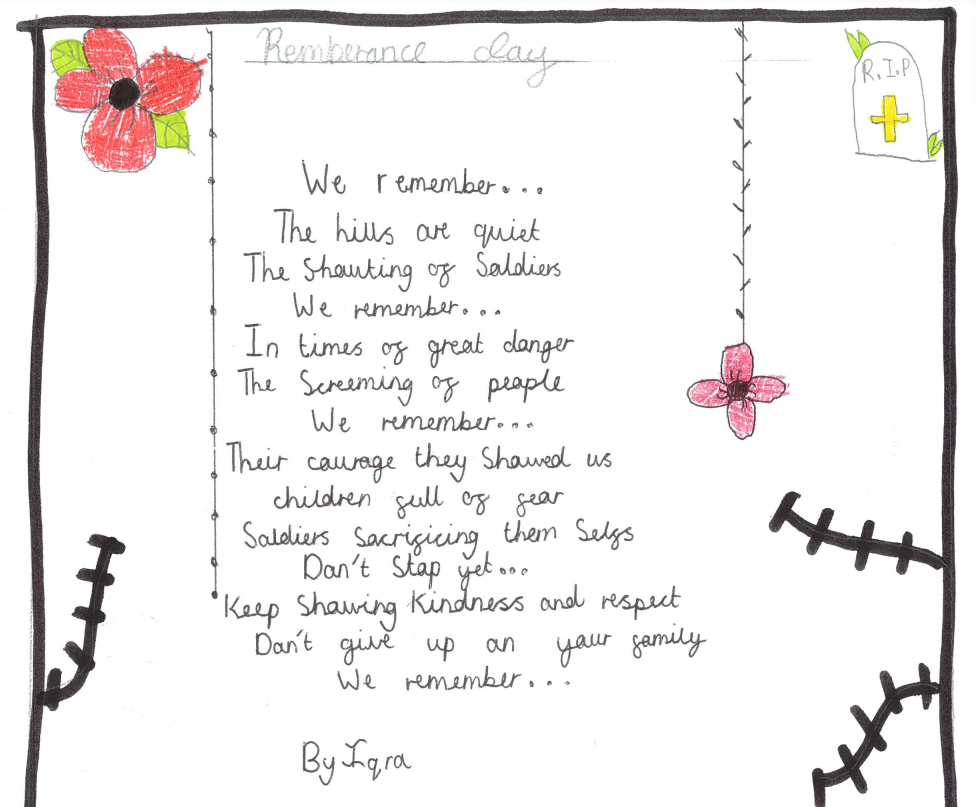 Remberance day
R.I.P
We remember...
The hills are quiet
The Shouting of Soldiers
We remember...
In times of great danger
The Screeming of people
We remember...
Their courage they Showed us
children full of fear
Soldiers Sacrificing them Selfs
Don't Stop yet...
Keep Showing Kindness and respect
Don't give up on your family
We remember...
By Iqra